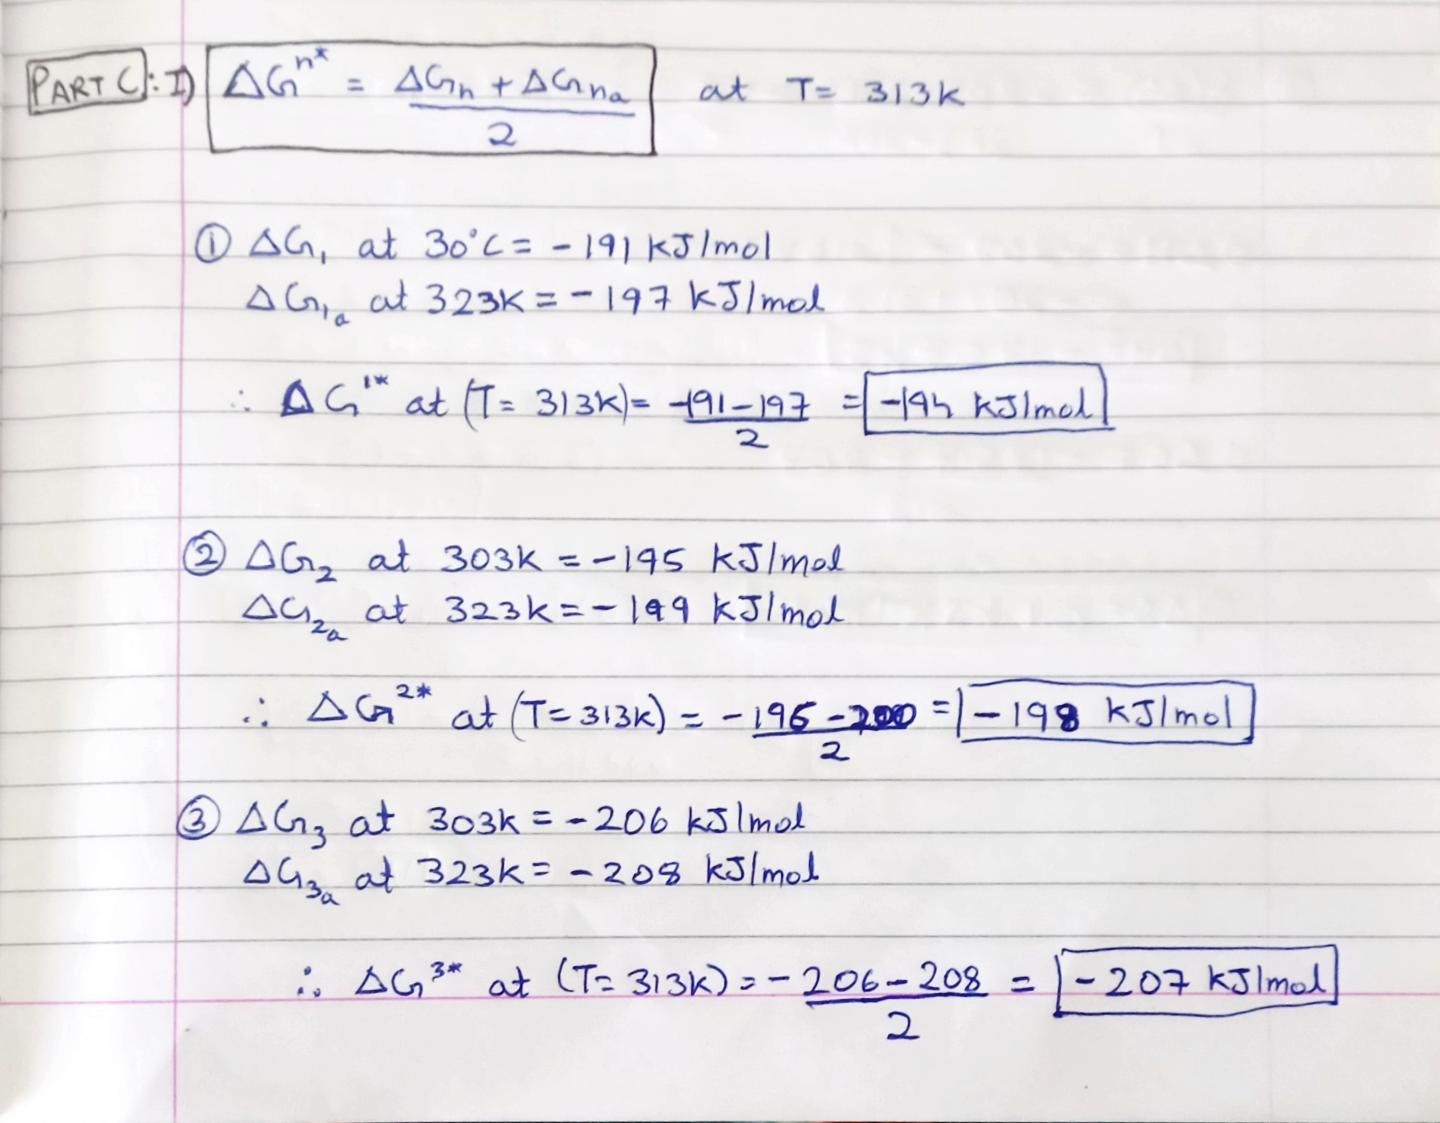 PART C: I) ΔG^n* = (ΔGn + ΔGna)/2 at T= 313k
① ΔG₁ at 30°C = -191 kJ/mol
ΔG₁a at 323K = -197 kJ/mol
∴ ΔG^1* at (T= 313K) = (-191-197)/2 = -194 kJ/mol
② ΔG₂ at 303K = -195 kJ/mol
ΔG₂a at 323K = -199 kJ/mol
∴ ΔG^2* at (T= 313K) = (-196-200)/2 = -198 kJ/mol
③ ΔG₃ at 303K = -206 kJ/mol
ΔG₃a at 323K = -208 kJ/mol
∴ ΔG^3* at (T= 313K) = (-206-208)/2 = -207 kJ/mol